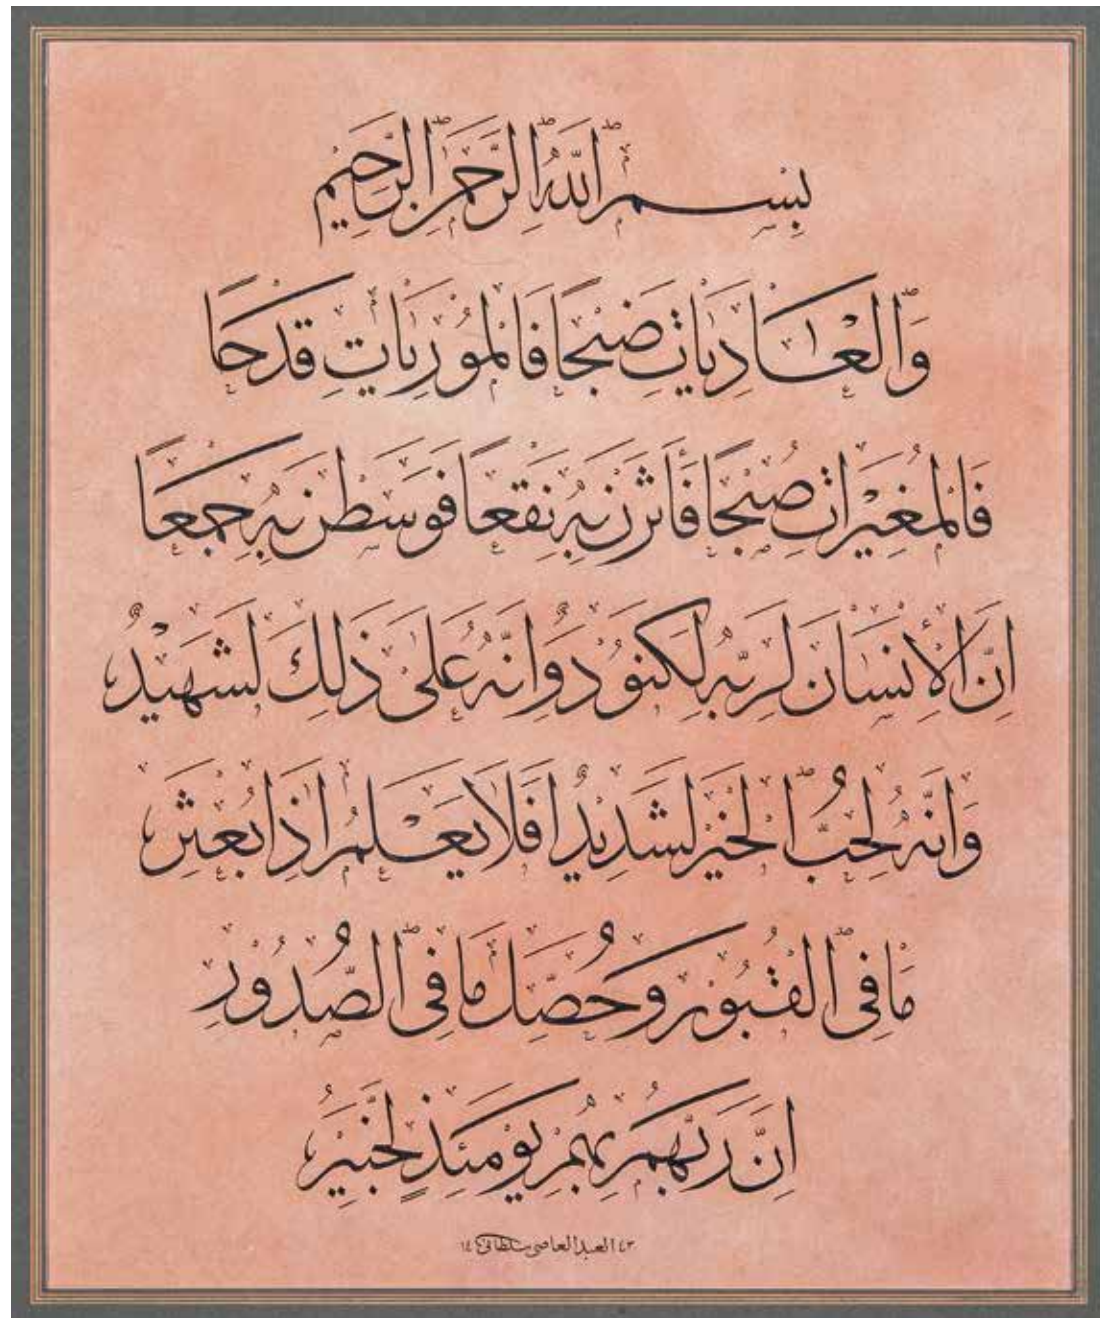 بِسْمِ اللّٰهِ الرَّحْمٰنِ الرَّحِيمِ
وَالْعَادِيَاتِ ضَبْحًا فَالْمُورِيَاتِ قَدْحًا
فَالْمُغِيرَاتِ صُبْحًا فَأَثَرْنَ بِهِ نَقْعًا فَوَسَطْنَ بِهِ جَمْعًا
اِنَّ الْاِنْسَانَ لِرَبِّهِ لَكَنُودٌ وَاِنَّهُ عَلَى ذَلِكَ لَشَهِيدٌ
وَاِنَّهُ لِحُبِّ الْخَيْرِ لَشَدِيدٌ اَفَلَا يَعْلَمُ اِذَا بُعْثِرَ
مَا فِي الْقُبُورِ وَحُصِّلَ مَا فِي الصُّدُورِ
اِنَّ رَبَّهُمْ بِهِمْ يَوْمَئِذٍ لَخَبِيرٌ
العبد العاصي